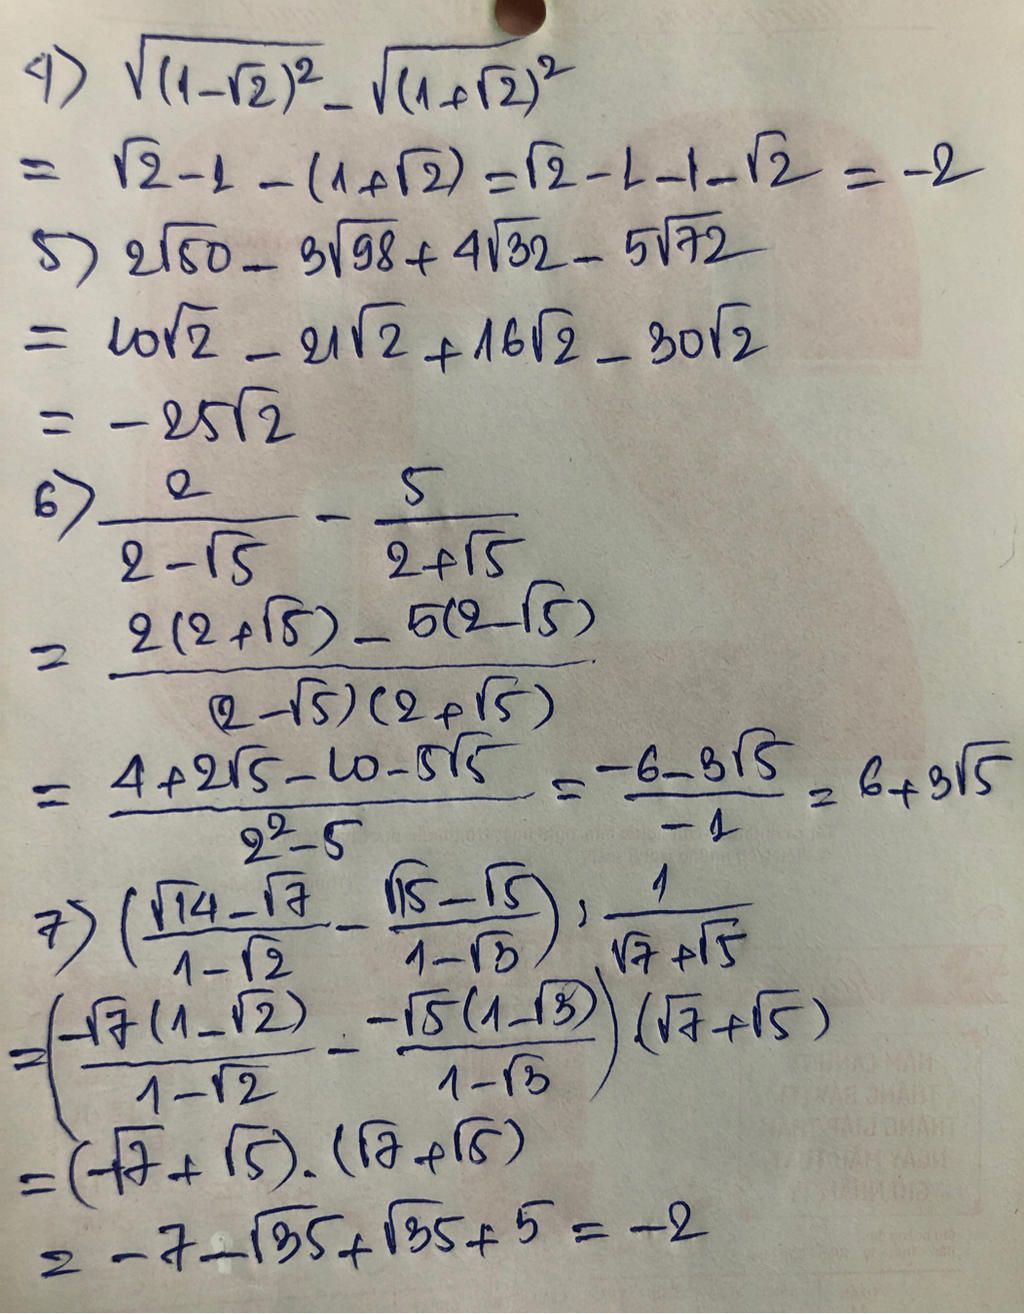 4) √(1-√2)² - √(1+√2)²
= √2-1 - (1+√2) = √2-1-1-√2 = -2
5) 2√50 - 3√98 + 4√32 - 5√72
= 10√2 - 21√2 + 16√2 - 30√2
= -25√2
6) 2/(2-√5) - 5/(2+√5)
= (2(2+√5) - 5(2-√5))/((2-√5)(2+√5))
= (4+2√5-10-5√5)/(2²-5) = (-6-3√5)/(-1) = 6+3√5
7) ((√14-√7)/(1-√2) - (√15-√5)/(1-√3)) : 1/(√7+√5)
= (-√7(1-√2)/(1-√2) - -√5(1-√3)/(1-√3)) . (√7+√5)
= (-√7+√5).(√7+√5)
= -7-√35+√35+5 = -2